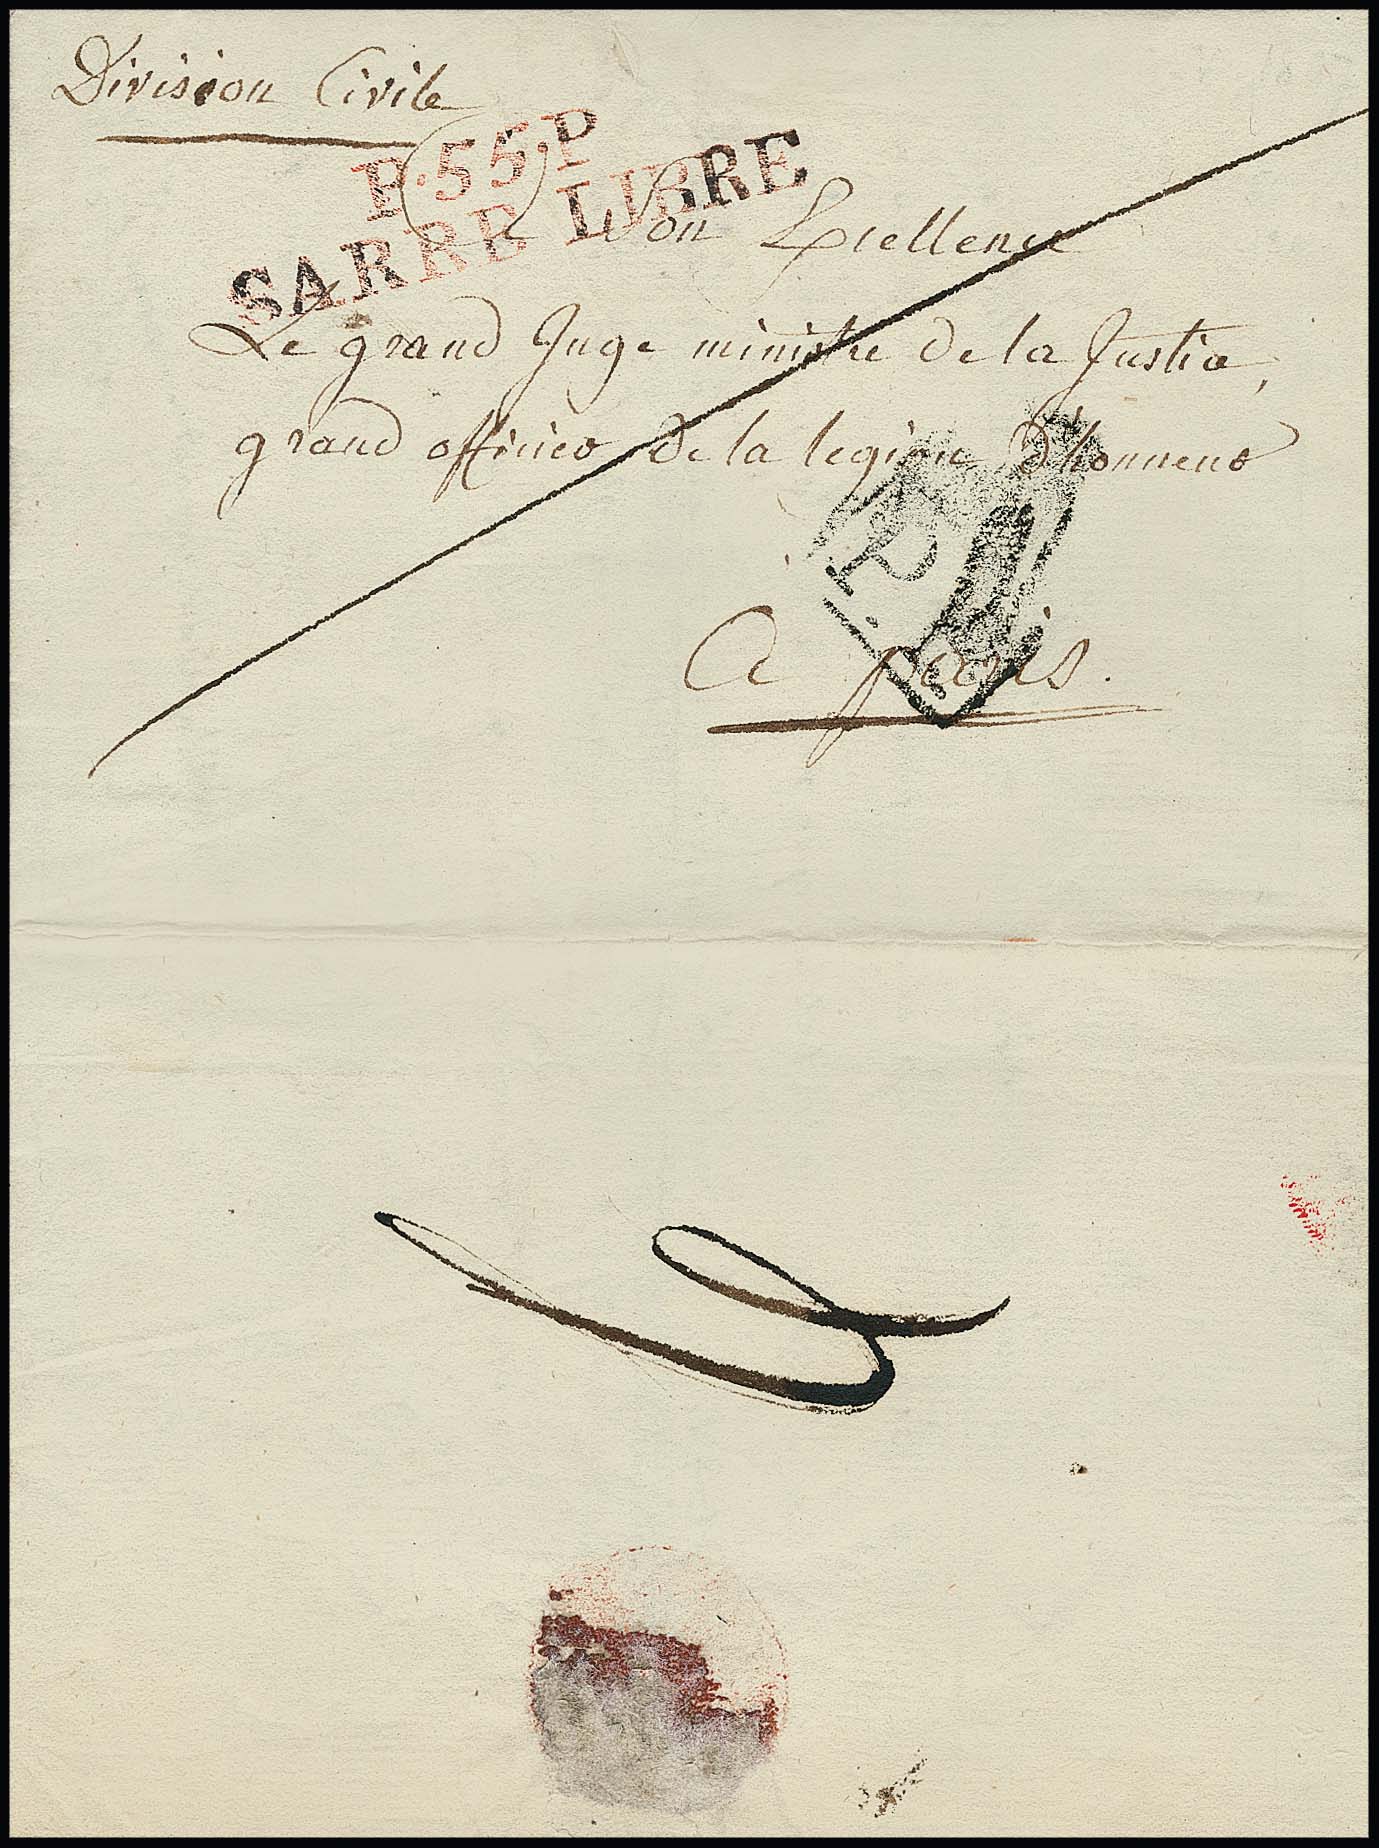 Division Civile
P.55.P
SARRE LIBRE
A Son Excellence
Le grand Juge ministre de la Justice,
grand officier de la legion d'honneur
A paris.
P.P.